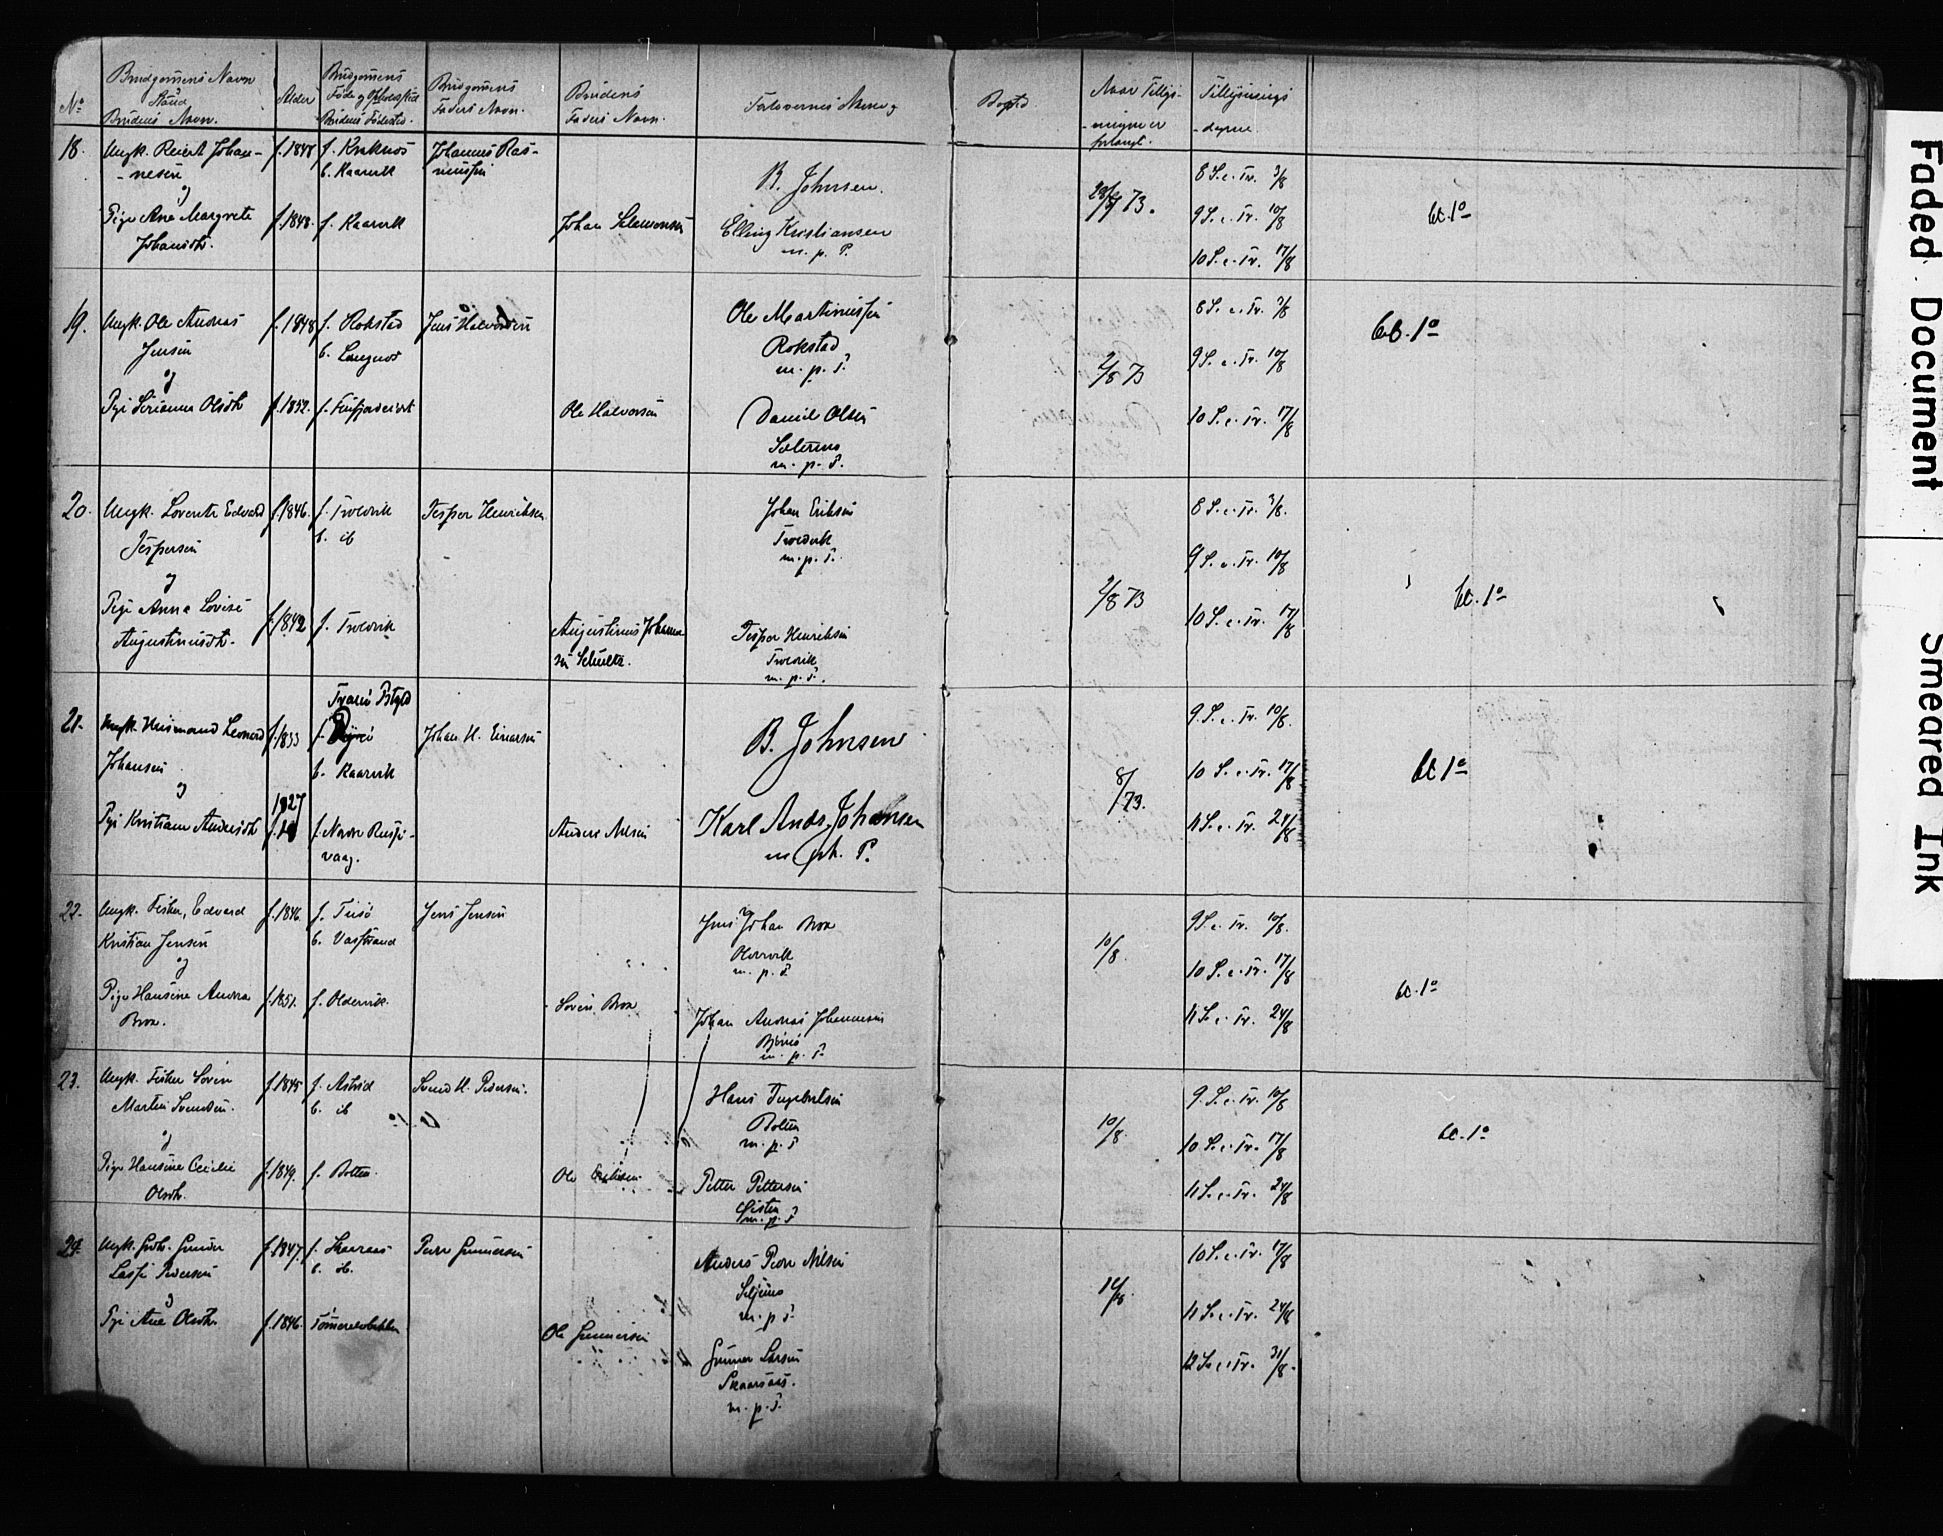 No
Brudgommens Navn
Stand
Brudens Navn.
Alder
Brudgommens
Føde og Opholdssted
Brudens Fødested.
Brudgommens
Faders Navn.
Brudens
Faders Navn.
Forlovernes Navn og
Bopæl
Naar Tillys-
-ningen er
forlangt.
Tillysnings
-dagene.
18.
Ungk. Reiert Johan-
-nesen
og
Pige Ane Margrete
Johansdtr.
f. 1848
f. 1848.
f. Kraknes
b. Kaarvik
f. Kaarvik
Johannes Ras-
mussen
Johan Salamonsen
B. Johnsen.
Elling Kristiansen
m. p. P.
73.
8 S. e. Tr. 3/8
9 S. e. Tr. 10/8
10 S. e. Tr. 17/8
bl. 1o
19.
Ungk. Ole Andreas
Jensen
og
Pige Olsdtr
f. 1848
f. 1852.
f. Rokstad
b. Langnes
Jens Halvorsen
Ole Halvorsen
Ole Martinussen
Rokstad
m. p. P.
Daniel Olsen
m. p. P.
2/8 73
8 S. e. Tr. 3/8
9 S. e. Tr. 10/8
10 S. e. Tr. 17/8
bl. 1o
20.
Ungk. Lorents Edvard
Jespersen
og
Pige Anna Lovise
Augustinusdtr.
f. 1846.
f. 1842
f. Troldvik
b. ib
f. Troldvik
Jesper Henriksen
Augustinus Johanne-
sen Schultz.
Johan Eriksen
Troldvik
m. p. P.
Jesper Henriksen
Troldvik
m. p. P.
2/8 73
8 S. e. Tr. 3/8.
9 S. e. Tr. 10/8
10 S. e. Tr. 17/8
bl. 1o
21.
Ungk. Leonard
Johansen
og
Pige Kristiane Andersdtr
f. 1833
1827
f.
Tranø Pstgjd
f.
b. Kaarvik
f. Nordre
vaag.
Johan H. Einarsen
Anders Nilsen
B. Johnsen
Karl Ands. Johansen
m. ph. P.
8/73.
9. S. e. Tr. 10/8.
10 S. e. Tr. 17/8
11 S. e. Tr. 24/8
bl 1o
22.
Ungk. Fisker, Edvard
Kristian Jensen
og
Pige Hansine Andrea
Brox.
f. 1846.
f. 1851.
f. Tusø
b. Vasstrand
f. Oldervik.
Jens Jensen
Søren Brox
Jens Johan Brox
Oldervik
m. p. P.
Johan Andreas Johannesen
m. p. P.
10/8.
9 S. e. Tr. 10/8.
10 S. e. Tr. 17/8
11 S. e. Tr. 24/8
bl. 1o
23.
Ungk. Fisker Søren
Martin Svendsen.
og
Pige Hansine Cecilie
Olsdtr.
f. 1845
f. 1849.
f. Astrid
b. ib
f. Botten.
Svend H. Pedersen.
Ole
Hans Ingebrigtsen
Botten
m. p. P
Petter Pettersen
m. p. P
10/8.
9. S. e. Tr. 10/8
10 S. e. Tr. 17/8
11 S. e. Tr. 24/8
bl. 1o
24.
Ungk. Gdb. Gunder
Lassen Pedersen
og
Pige Ane Olsdtr.
f. 1847.
f. 1846.
f. Skaaraas
b. ib.
Peder Gunnersen
Ole Gunnersen
Anders Peder Nilsen
Seljenes
m. p. P.
Gunner Larsen
Skaaraas.
m. p. P.
10 S. e. Tr. 17/8
11 S. e. Tr. 24/8
12 S. e. Tr. 31/8.
Faded Document
Smeared Ink